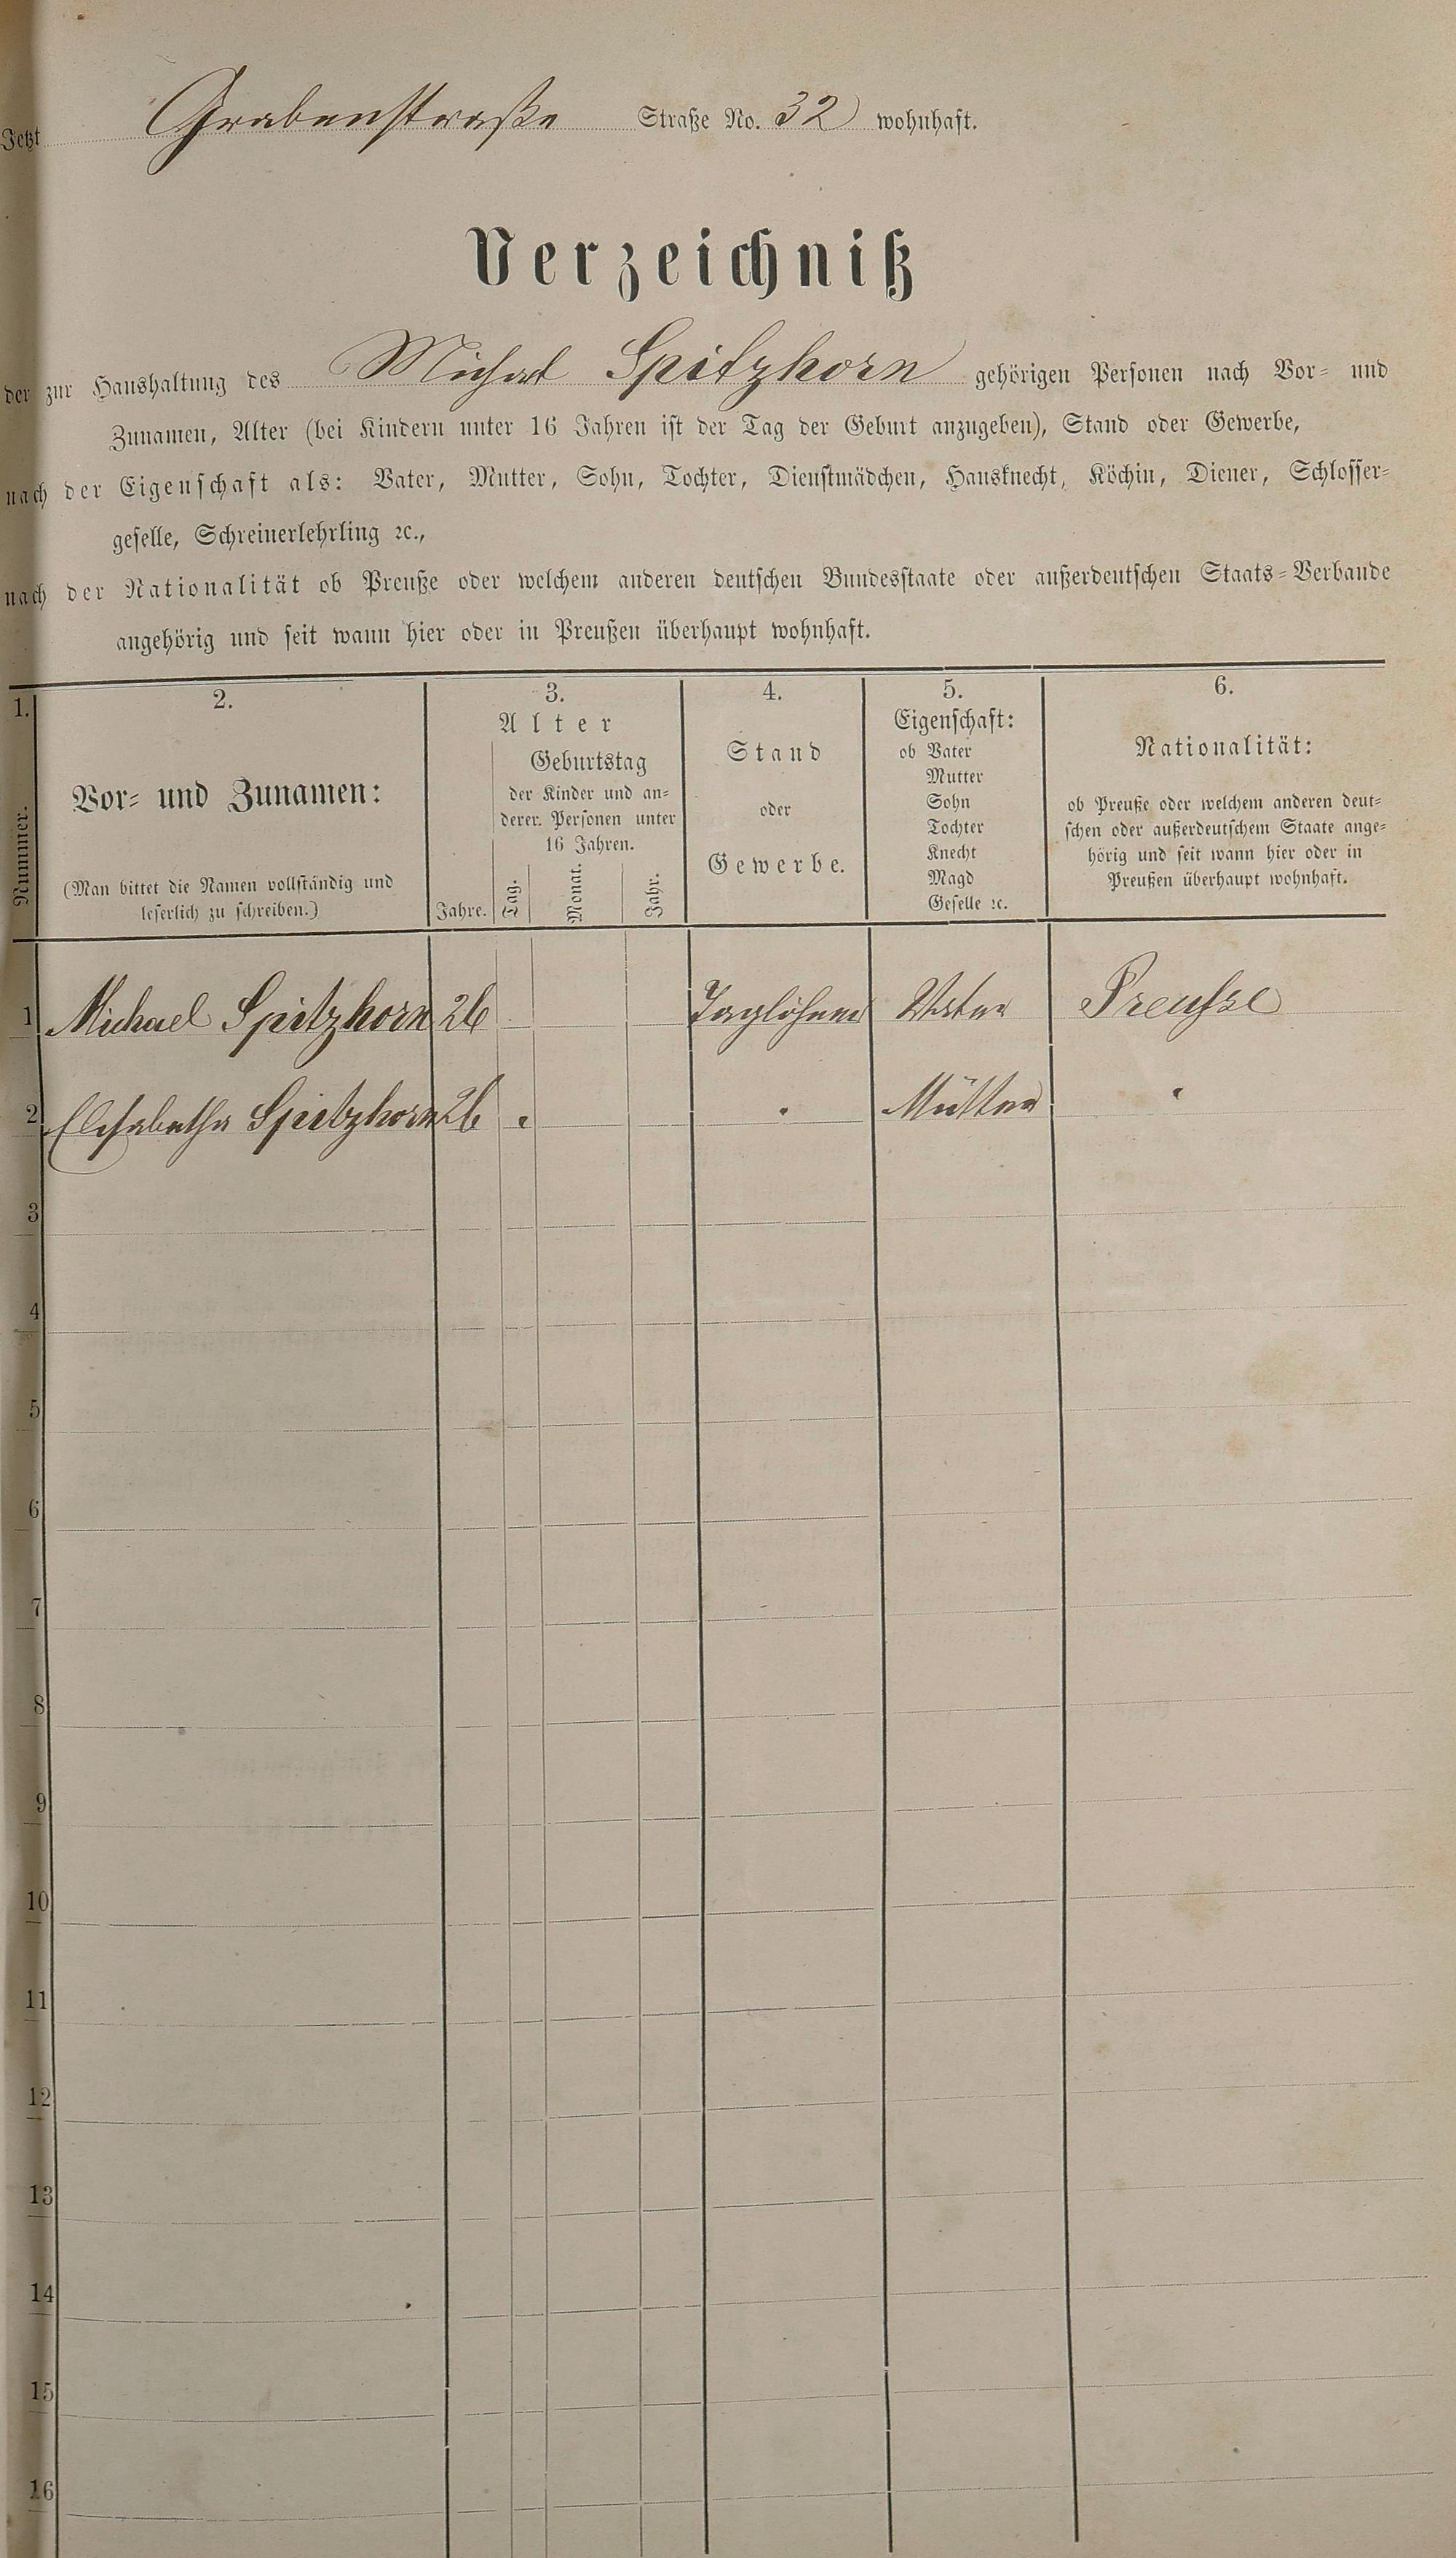 Jetzt Grabenstraße Straße No. 32 wohnhaft.
Verzeichniß
der zur Haushaltung des Michael Spitzhorn gehörigen Personen nach Vor- und
Zunamen, Alter (bei Kindern unter 16 Jahren ist der Tag der Geburt anzugeben), Stand oder Gewerbe,
nach der Eigenschaft als: Vater, Mutter, Sohn, Tochter, Dienstmädchen, Hausknecht, Köchin, Diener, Schlosser-
geselle, Schreinerlehrling ꝛc.,
nach der Nationalität ob Preuße oder welchem anderen deutschen Bundesstaate oder außerdeutschen Staats-Verbande
angehörig und seit wann hier oder in Preußen überhaupt wohnhaft.
1.
Nummer.
2.
Vor- und Zunamen:
(Man bittet die Namen vollständig und
leserlich zu schreiben.)
3.
Alter
Jahre.
Geburtstag
der Kinder und an-
derer. Personen unter
16 Jahren.
Tag.
Monat.
Jahr.
4.
Stand
oder
Gewerbe.
5.
Eigenschaft:
ob Vater
Mutter
Sohn
Tochter
Knecht
Magd
Geselle ꝛc.
6.
Nationalität:
ob Preuße oder welchem anderen deut-
schen oder außerdeutschem Staate ange-
hörig und seit wann hier oder in
Preußen überhaupt wohnhaft.
1 Michael Spitzhorn 26 Taglöhner Vater Preusse
2 Elisabetha Spitzhorn 26 " " Mutter "
3
4
5
6
7
8
9
10
11
12
13
14
15
16